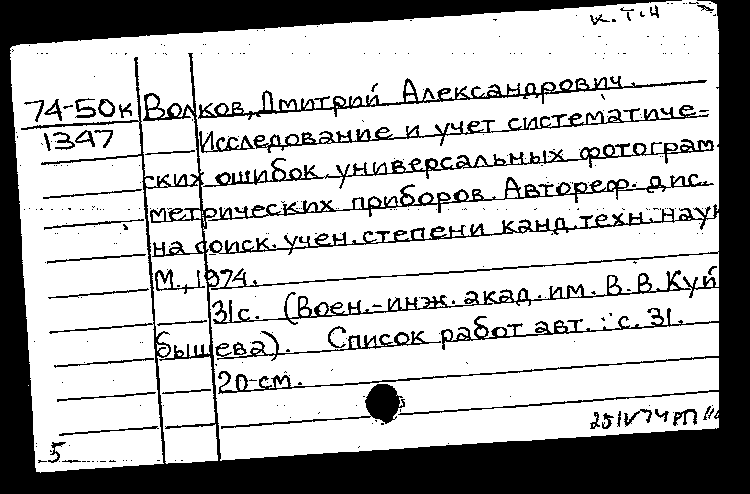 К. Т-4
74-50к Волков, Дмитрий Александрович.
1347 Исследование и учет системати­че=
ских ошибок универсальных фотограм
метрических приборов. Автореф. дис.
на соиск. учен. степени канд. техн. наук
М., 1974.
31с. (Воен.-инж. акад. им. В. В. Куй
бышева). Список работ авт.: с. 31.
20 см.
25IV74 РП
5